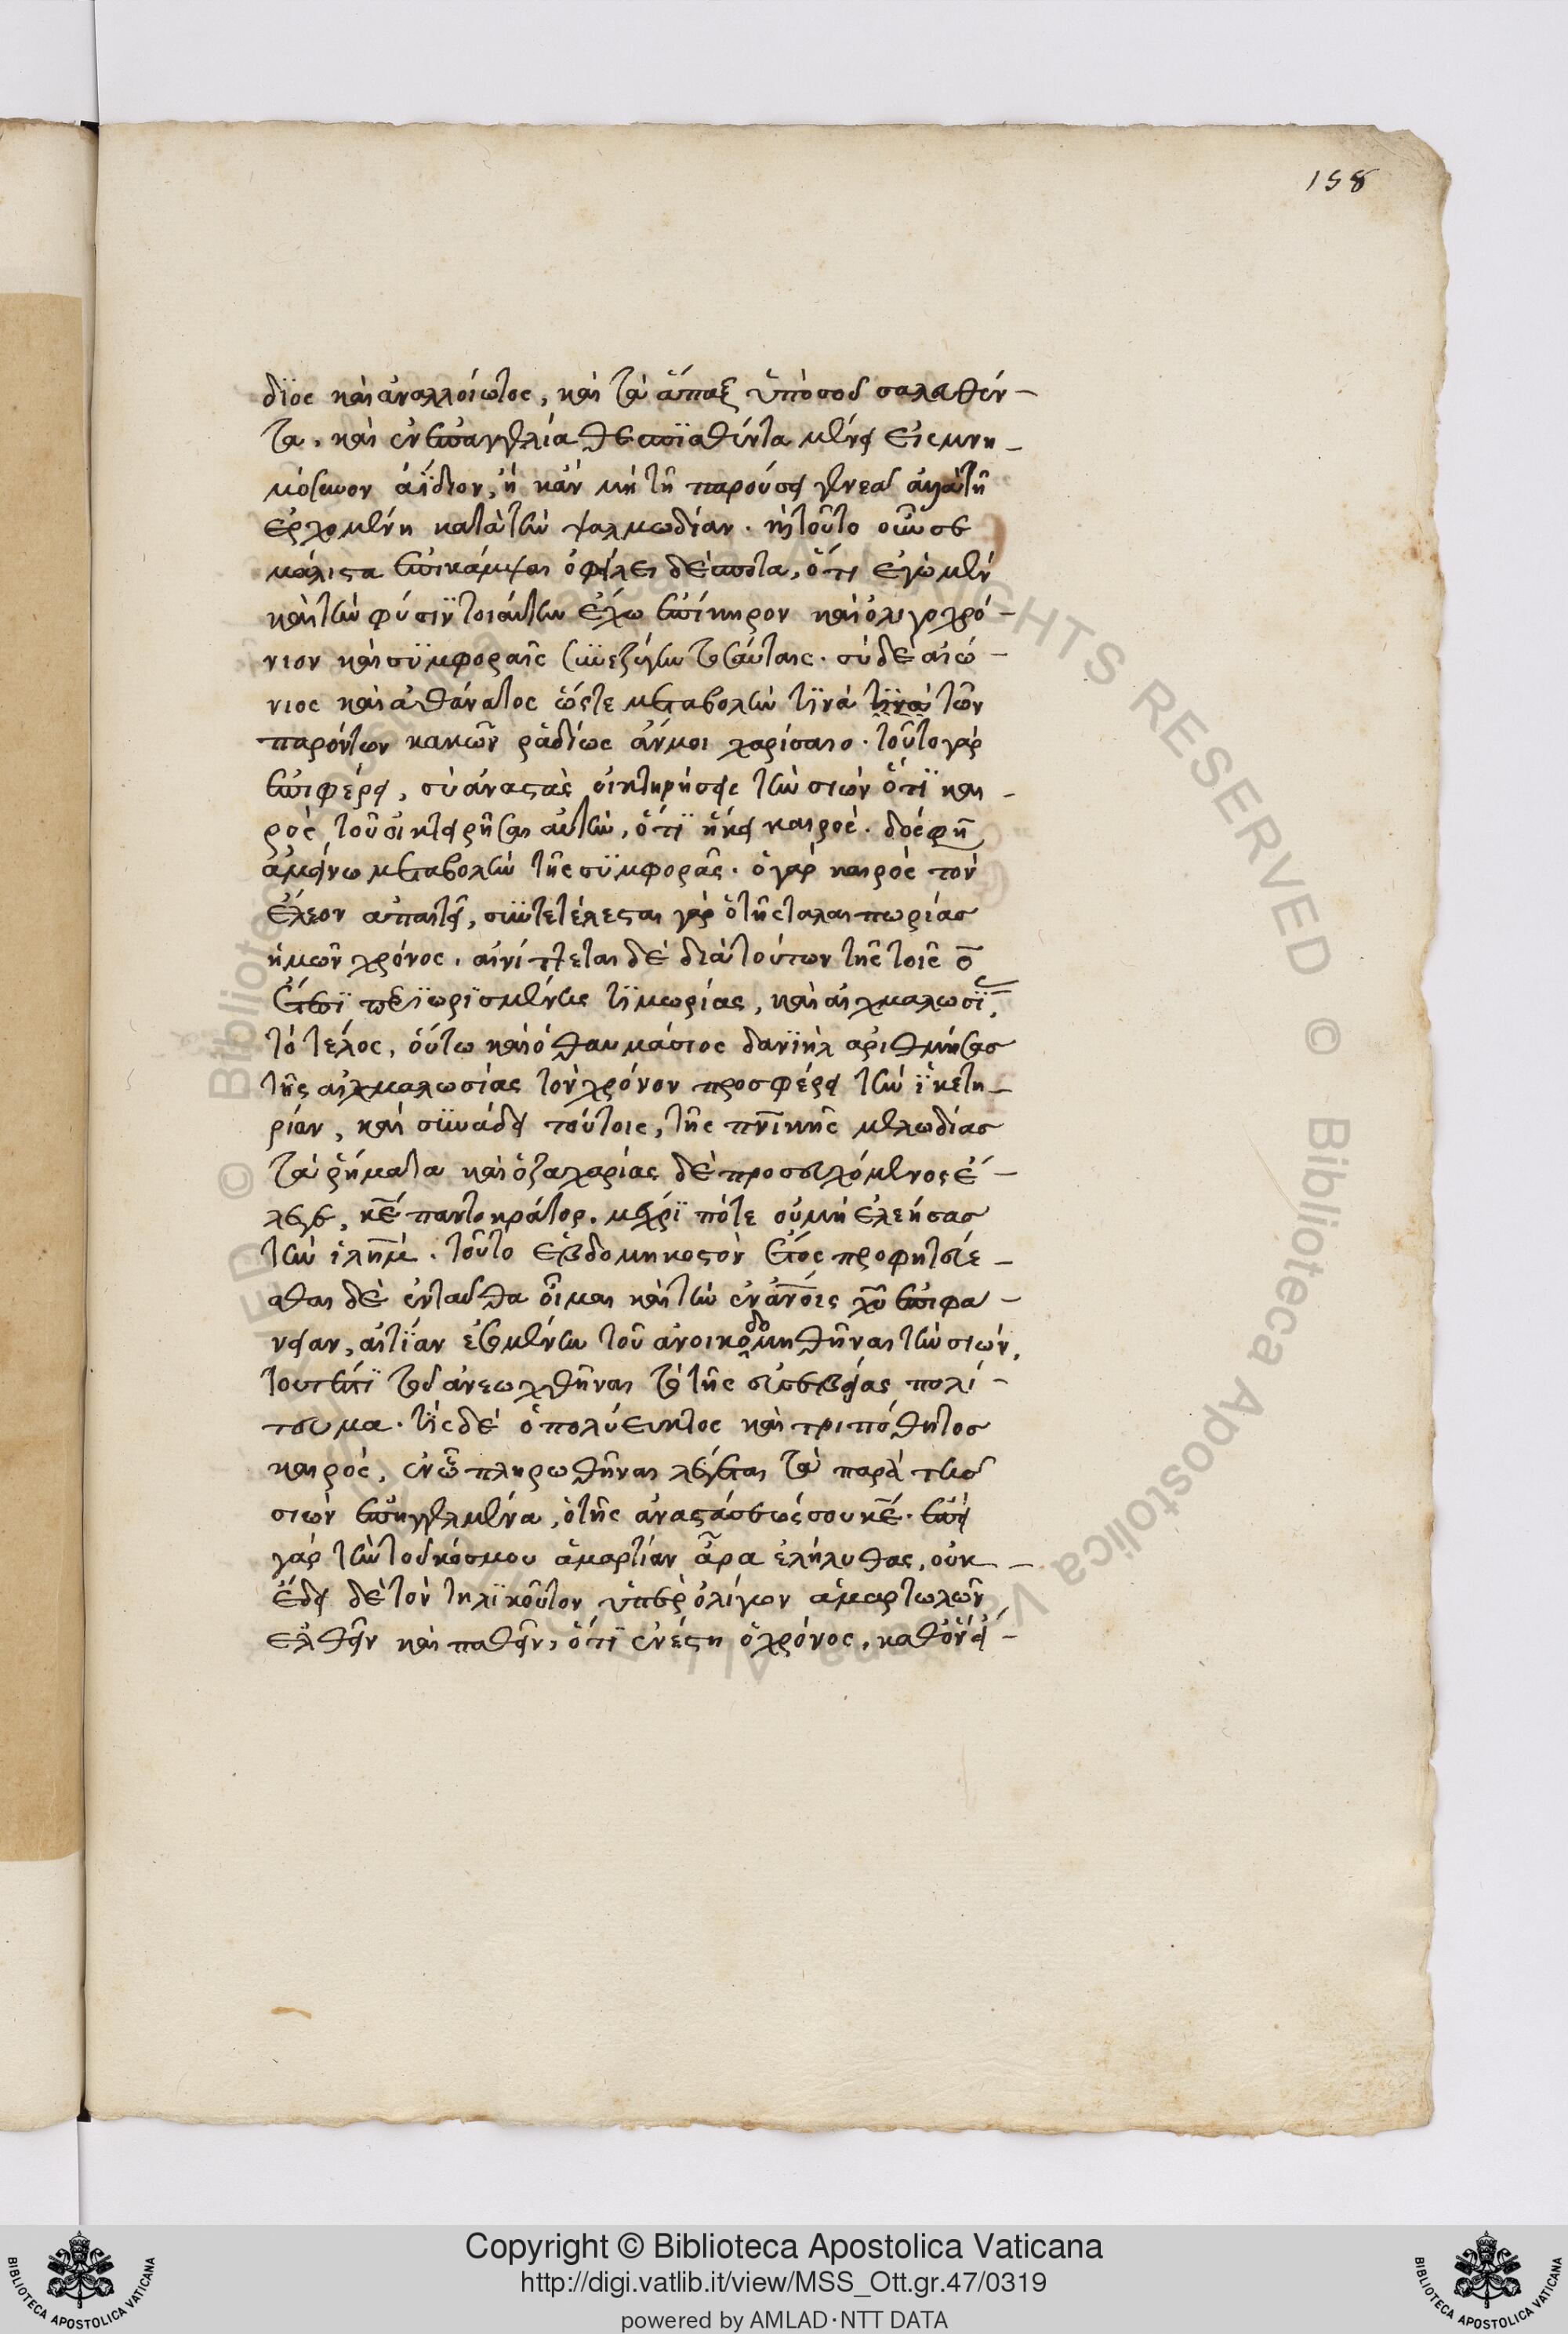 158
διος καὶ ἀναλλοίωτος, καὶ τὰ ἅπαξ ὑπὸ σοῦ σαλαθέν-
τα, καὶ ἐν ἐπαγγελία θεσπϊαθέντα μένει εἰς μνη-
μόσυνον ἀΐδιον, ἢ κἂν μὴ τῆ παρούση γενεᾶ ἀλλὰ τῆ
ἐρχομένη κατὰ τὴν ψαλμωδίαν. κỳ τοῦτο οὖν σε
μάλιστα ἐπικάμψαι ὀφείλει δέσποτα, ὅτι ἐγὼ μὲν
καὶ τὴν φύσιν τοιαύτην ἔχω ἐπίκηρον καὶ ὀλιγοχρό-
νιον καὶ συμφοραῖς συνεζύγην τοσαύταις. σὺ δὲ αἰώ-
νιος καὶ ἀθάνατος ὥστε μεταβολὴν τϊνὰ τϊνὰ τῶν
παρόντων κακῶν ῥαδίως ἄν μοι χαρίσαιο. τοῦτο γὰρ
ἐπιφέρει, σὺ ἀναστὰς οἰκτηρήσεις τὴν σιὼν ὅτϊ και-
ρὸς τοῦ οἰκτειρῆσαι αὐτὴν, ὅτϊ ἥκει καιρός. δός φη
ἀμείνω μεταβολὴν τῆς συμφορᾶς. ὁ γὰρ καιρὸς τὸν
ἔλεον ἀπαιτεῖ, συντετέλεσται γὰρ ὁ τῆς ταλαιπωρίας
ἡμῶν χρόνος. αἰνίττεται δὲ διὰ τούτων τῆς τοῖς ο̅
ἔτεσϊ περϊωρϊσμένης τϊμωρίας, καὶ αἰχμαλωσϊ
τὸ τέλος, οὕτω καὶ ὁ θαυμάσιος δανϊὴλ ἀριθμήσας
τῆς αἰχμαλωσίας τὸν χρόνον προσφέρει τὴν ἱκετη-
ρίαν, καὶ συνάδει τούτοις, τῆς πνϊκῆς μελωδίας
τὰ ῥήματα καὶ ὁ ζαχαρίας δὲ προσευχόμενος ἔ-
λεγε, κε̅ παντοκράτορ. μέχρϊ πότε οὐ μὴ ἐλεήσας
τὴν ἱλημ̅. τοῦτο ἑβδομηκοστὸν ἔτος προφητεύε-
σθαι δὲ ἐνταῦθα οἶμαι καὶ τὴν ἐν ἀνοις̅ χυ̅ ἐπιφά-
νειαν, αἰτϊαν ἐσομένην τοῦ ἀνοικοδομηθῆναι τὴν σιὼν,
τουτέστϊ τοῦ ἀνεωχθῆναι τὸ τῆς εὐσεβείας πολί-
τευμα. τϊς δὲ ὁ πολύευκτος καὶ τριπόθητος
καιρὸς, ἐν ὧ πληρωθῆναι λέγεται τὰ παρὰ τῆς
σιὼν ἐπηγγελμένα, ὁ τῆς ἀναστάσεώς σου κε̅. ἐπεὶ
γὰρ τὴν τοῦ κόσμου ἁμαρτίαν ἆραι ἐλήλυθας, οὐκ
ἔδει δὲ τὸν τηλϊκοῦτον ὑπὲρ ὀλίγων ἁμαρτωλῶν
ἐλθεῖν καὶ παθεῖν, ὅτϊ ἐνέστη ὁ χρόνος, καθ' ὃν εἰ-
Copyright © Biblioteca Apostolica Vaticana
http://digi.vatlib.it/view/MSS_Ott.gr.47/0319
powered by AMLAD·NTT DATA
BIBLIOTECA APOSTOLICA VATICANA
BIBLIOTECA APOSTOLICA VATICANA